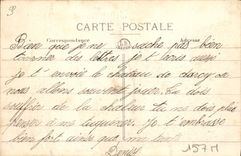 CARTE POSTALE
Correspondance Adresse
Bien que je ne sache pas bien
tourner des lettres je t'écris aussi
je t'envoie le chateau de darcy ou
nous allons souvent jouer. tu dois
souffrir de la chaleur tu ne dois plus
penser à me taquiner. je t'embrasse
bien fort ainsi que
Denise
157M